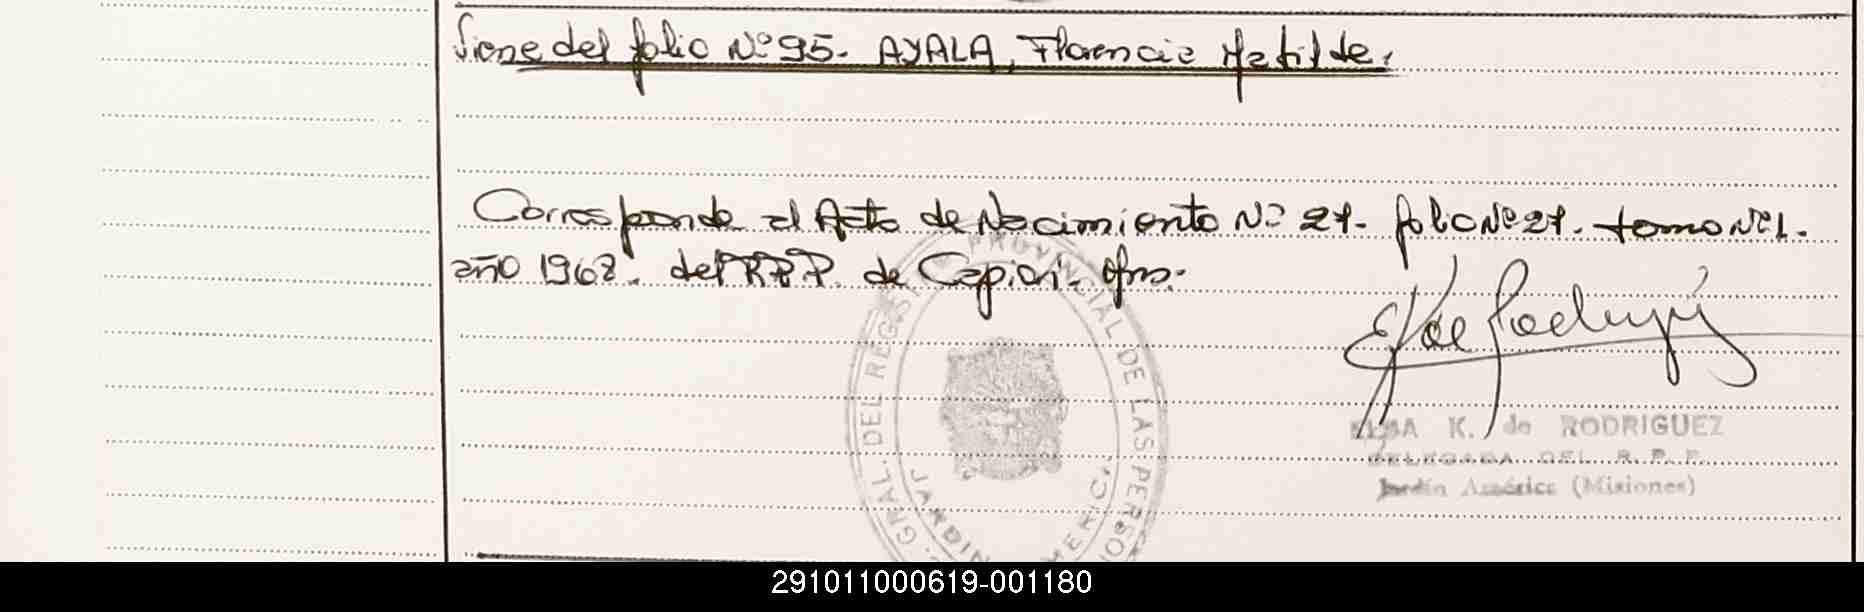 Viene del folio Nº 95- AYALA, Florencia Matilde.
Corresponde al Acta de Nacimiento Nº 27- folio Nº 27. tomo Nº 1.
año 1968. del R.P.P. de Capioví- Mnes.
ELSA K. de RODRIGUEZ
DELEGADA DEL R. P. P.
Jardín América (Misiones)
GRAL. DEL REGIST PROVINCIAL DE LAS PERSO
JARDIN AMERIC
291011000619-001180